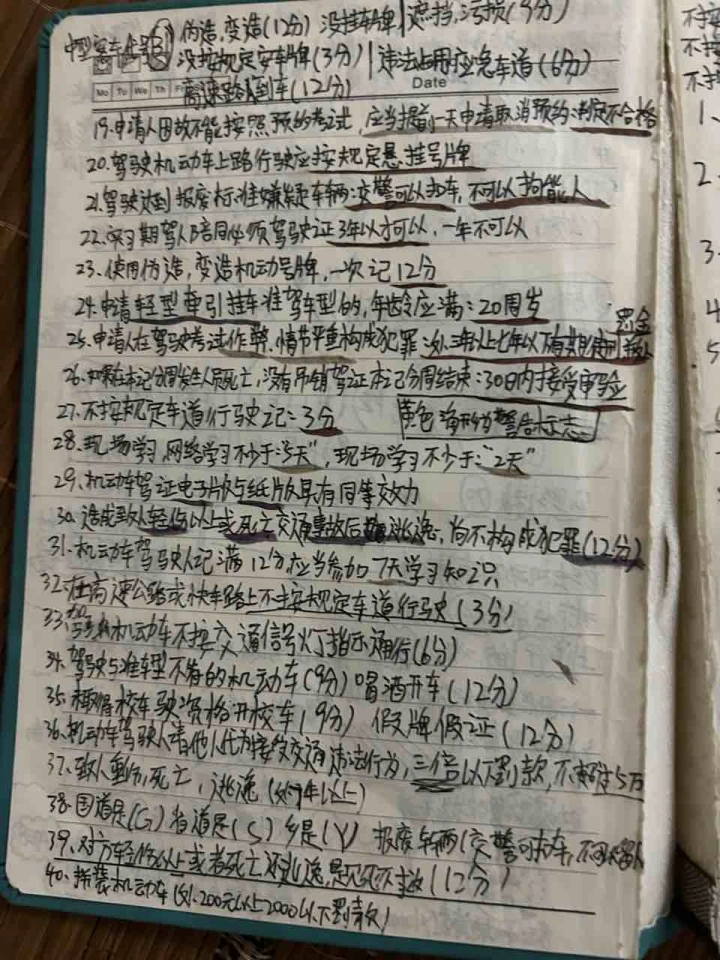 中型客车是B1 伪造,变造(12分) 没挂车牌|遮挡,污损(9分)
没按规定安车牌(3分)|违法占用应急车道(6分)
高速路倒车(12分)
Mo Tu We Th Date
19.申请人因故不能按照预约考试,应当提前一天申请取消预约:判定不合格
20.驾驶机动车上路行驶应按规定悬挂号牌
21.驾驶达到报废标准嫌疑车辆:交警可以扣车,不可以拘留人
22.实习期驾人陪同必须驾驶证3年以上才可以,一年不可以
23.使用伪造,变造机动号牌,一次记12分
24.申请轻型牵引挂车准驾车型的,年龄应满:20周岁
罚金
25.申请人在驾驶考试作弊,情节严重构成犯罪:处三年以上七年以下有期徒刑
26.如果在本记分周发生人员死亡,没有吊销驾证本记分周结束:30日内接受审验
27.不按规定车道行驶记:3分
黄色 为警告标志
28.现场学习,网络学习不少于:"5天",现场学习不少于:"2天"
29.机动车驾证电子版与纸质版具有同等效力
30.造成致人轻伤以上或死亡交通事故后逃逸,尚不构成犯罪(12分)
31.机动车驾驶人记满12分,应当参加7天学习知识
32.在高速公路或快车路上不按规定车道行驶(3分)
33.驾驶机动车不按交通信号灯指示通行(6分)
34.驾驶与准车型不符的机动车(9分) 喝酒开车(12分)
35.未取得校车驾驶资格开校车(9分) 假牌假证(12分)
36.机动车驾驶人请他人代为接受交通违法行为,三倍以下罚款,不超5万
37.致人重伤,死亡,逃逸(处7年以上)
38.国道是(G)省道是(S)乡是(Y) 报废车辆(交警可扣车,不可以
39.对方轻伤以上或者死亡还逃逸,见死不救(12分)
40.拼装机动车(处:200元以上2000以下罚款)